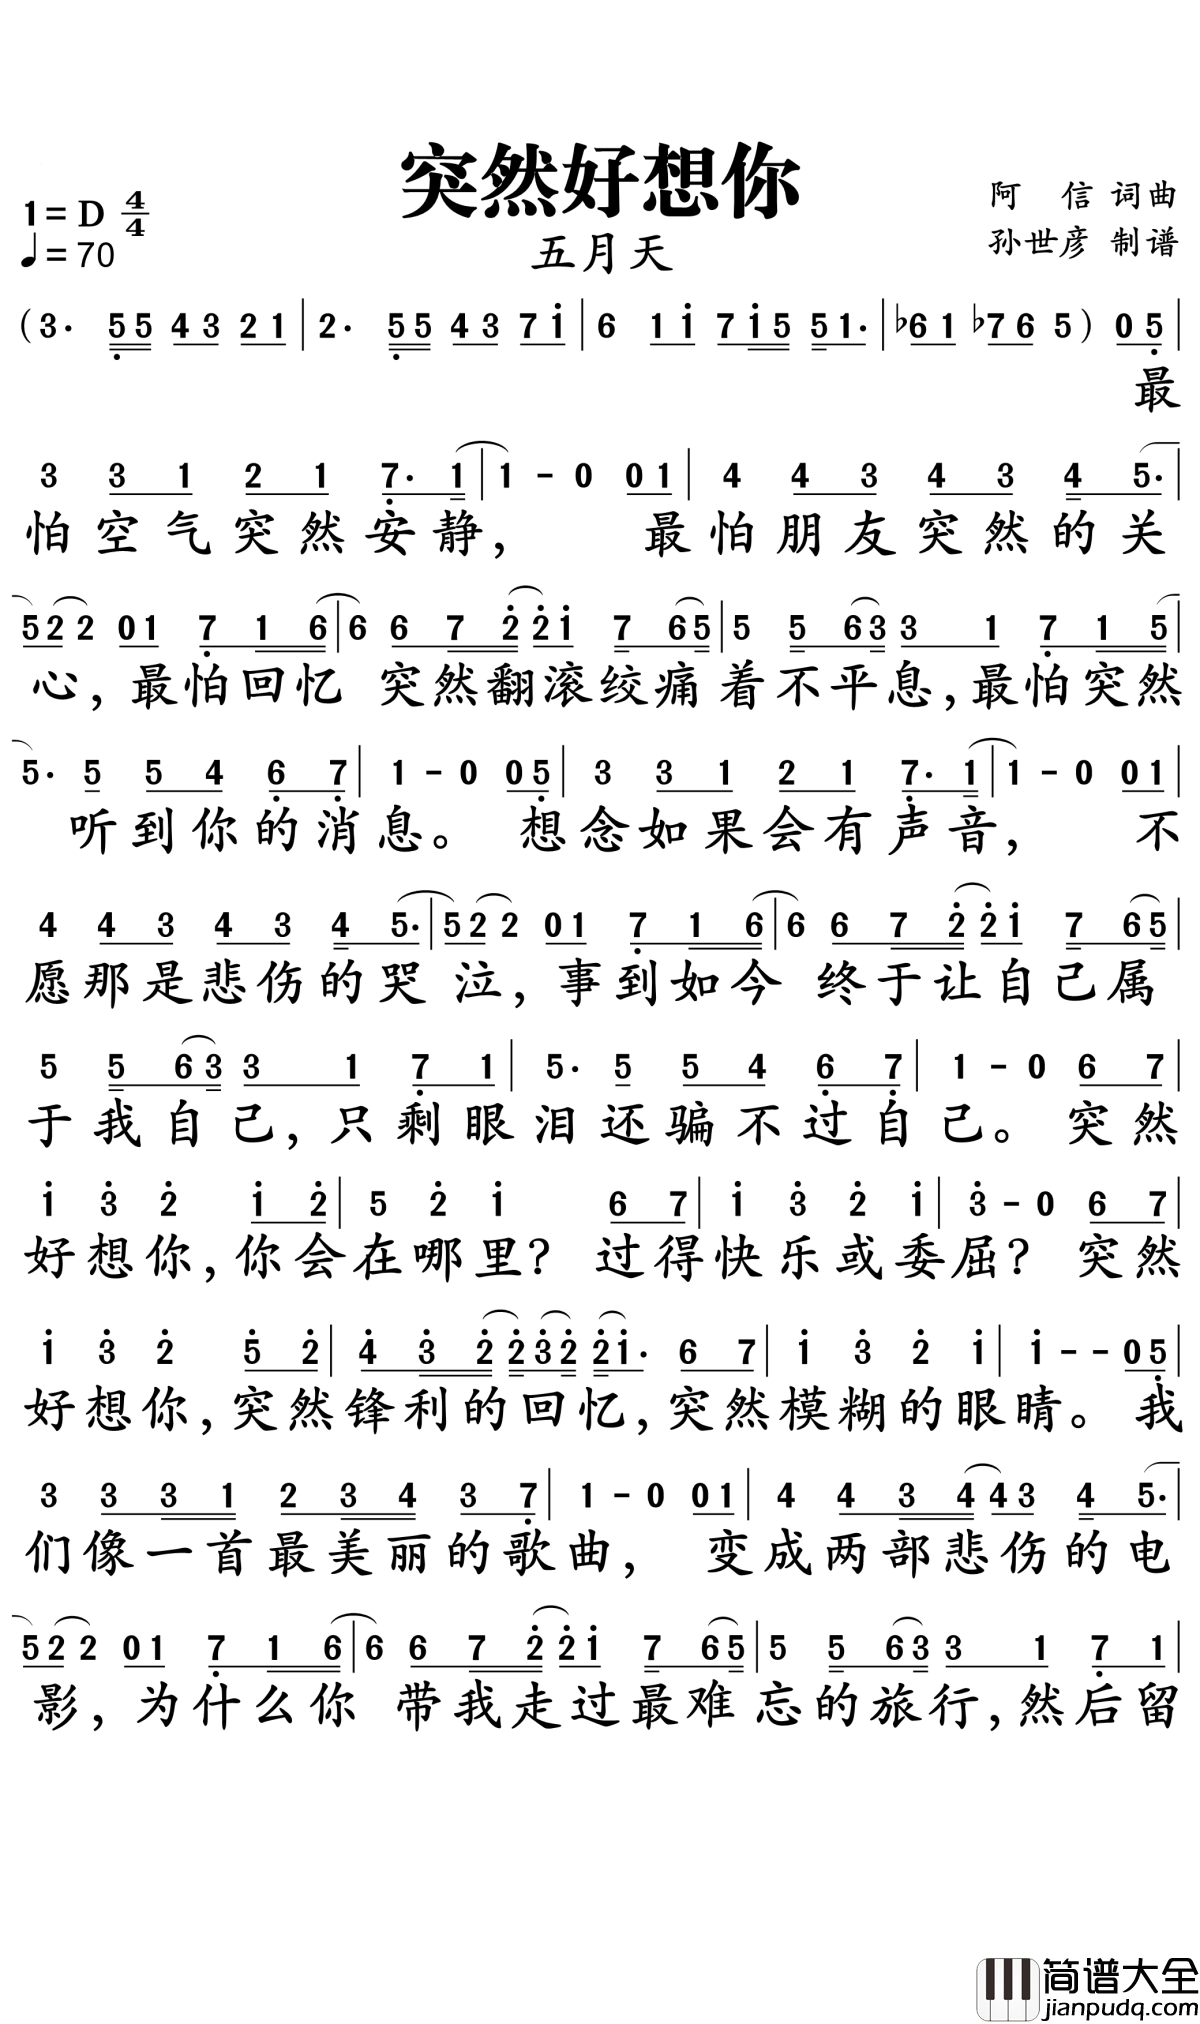 突然好想你
1=D 4/4
♩=70
五月天
阿 信 词曲
孙世彦 制谱
(3. 5̣5 43 21 | 2. 5̣5 43 7i̇ | 6 1i̇ 7i̇5 51. | ♭61 ♭76 5) 05̣ |
最
3 31 21 7̣.1 | 1 - 0 01 | 4 43 43 45. |
怕空气突然安静， 最怕朋友突然的关
522 01 7̣16 | 6 672̇ 2̇i̇ 765 | 5 563 31 7̣15 |
心，最怕回忆 突然翻滚绞痛着不平息，最怕突然
5. 5 54 6̣7̣ | 1 - 0 05̣ | 3 31 21 7̣.1̇ | 1 - 0 01 |
听到你的消息。 想念如果会有声音， 不
4 43 43 45. | 522 01 7̣16 | 6 672̇ 2̇i̇ 765 |
愿那是悲伤的哭泣，事到如今 终于让自己属
5 563 31 7̣1 | 5. 5 54 6̣7̣ | 1 - 0 67 |
于我自己，只剩眼泪还骗不过自己。突然
i̇ 3̇ 2̇ i̇2̇ | 5 2̇ i̇ 67 | i̇ 3̇ 2̇ i̇ | 3̇ - 0 67 |
好想你，你会在哪里？过得快乐或委屈？突然
i̇ 3̇ 2̇ 5̇2̇ | 4̇3̇2̇ 2̇3̇2̇ 2̇i̇. 67 | i̇ 3̇ 2̇ i̇ | i̇ - - 05̣ |
好想你，突然锋利的回忆，突然模糊的眼睛。我
3 331 234 37̣ | 1 - 0 01 | 4 434 43 45. |
们像一首最美丽的歌曲， 变成两部悲伤的电
522 01 7̣16 | 6 672̇ 2̇i̇ 765 | 5 563 31 7̣1 |
影，为什么你 带我走过最难忘的旅行，然后留
简谱大全
jianpudq.com